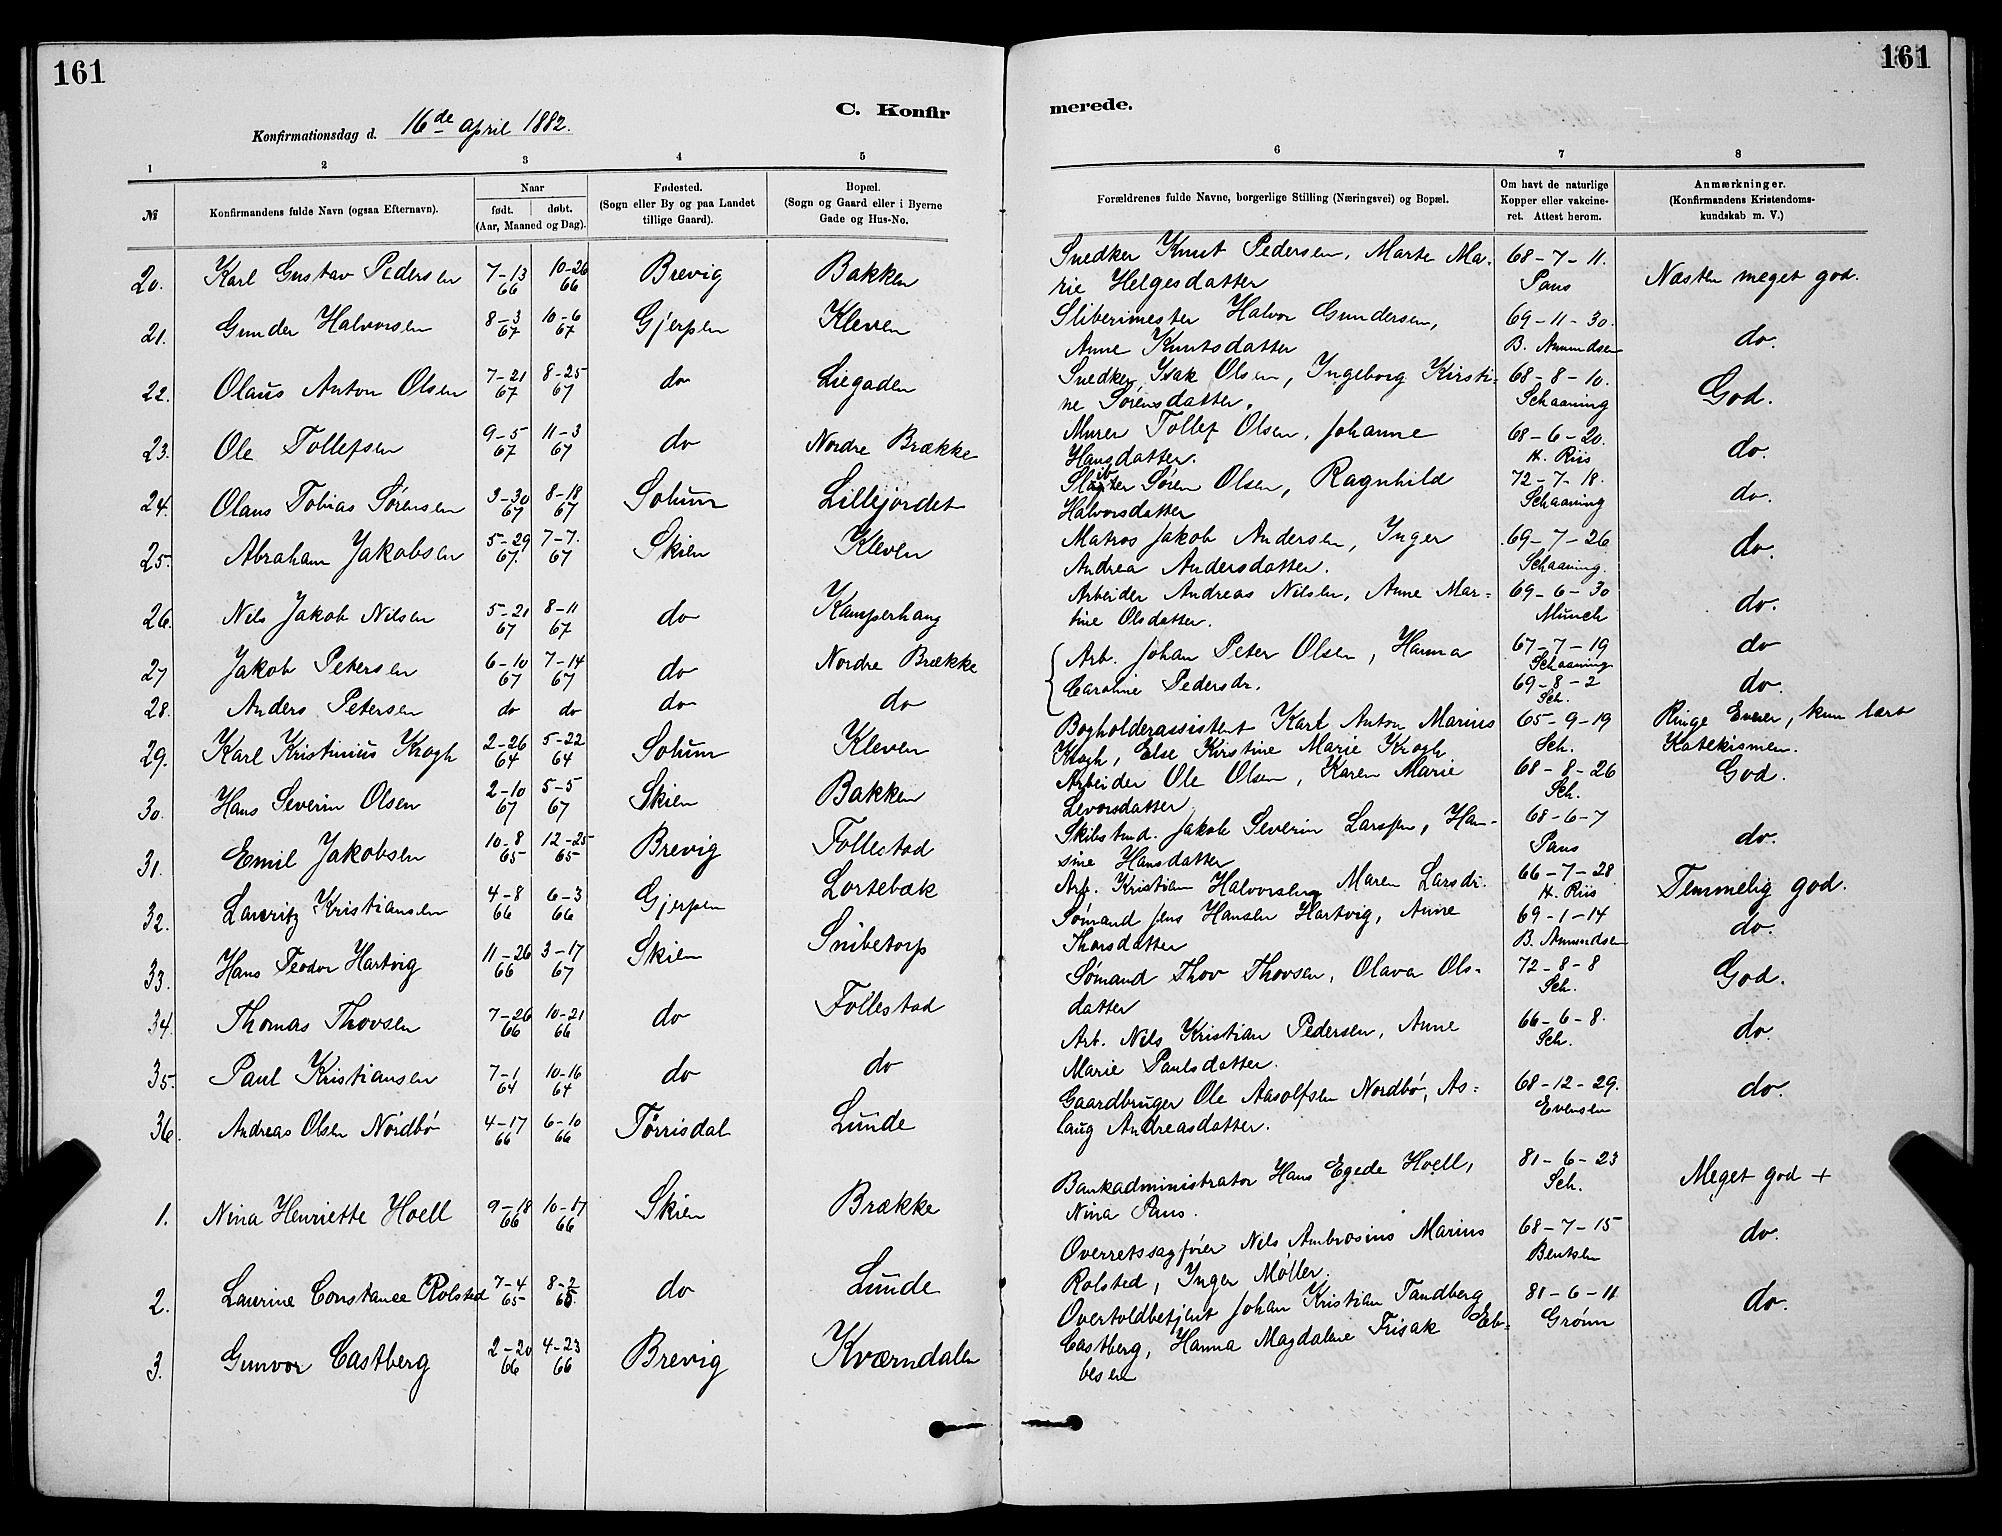 161
161
C. Konfirmerede.
Konfirmationsdag d. 16de april 1882.
1 2 3 4 5 6 7 8
№ Konfirmandens fulde Navn (ogsaa Efternavn). Naar født. døbt. (Aar, Maaned og Dag). Fødested. (Sogn eller By og paa Landet tillige Gaard). Bopæl. (Sogn og Gaard eller i Byerne Gade og Hus-No. Forældrenes fulde Navne, borgerlige Stilling (Næringsvei) og Bopæl. Om havt de naturlige Kopper eller vakcineret. Attest herom. Anmærkninger. (Konfirmandens Kristendomskundskab m. V.)
20. Karl Gustav Pedersen 7-13 66 10-26 66 Brevig Bakken Snedker Knut Pedersen, Marte Marie Helgesdatter 68-7-11. Paus Næsten meget god.
21. Gunder Halvorsen 8-3 67 10-6 67 Gjerpen Kleven Sliberimester Halvor Gundersen, Anne Knutsdatter 69-11-30. B. Amundsen do.
22. Olaus Anton Olsen 7-21 67 8-25 67 do Liegaden Snedker Isak Olsen, Ingeborg Kirstine Sørensdatter. 68-8-10. Schaaning God.
23. Ole Tollefsen 9-5 67 11-3 67 do Nordre Brække Murer Tollef Olsen, Johanne Hansdatter. 68-6-20. H. Riis do.
24. Olaus Tobias Sørensen 3-30 67 8-18 67 Solum Lillejordet Søren Olsen, Ragnhild Halvorsdatter 72-7-18. Schaaning do.
25. Abraham Jakobsen 5-29 67. 7-7. 67 Skien Kleven Matros Jakob Andersen, Inger Andrea Andersdatter. 69-7-26 Schaaning. do.
26. Nils Jakob Nilsen 5-21 67 8-11 67 do Kamperhaug Arbeider Andreas Nilsen, Anne Martine Olsdatter. 69-6-30 Münch do.
27 Jakob Petersen 6-10 67 7-14 67 do Nordre Brække Arb. Johan Peter Olsen, Hanna Caroline Pedersdr. 67-7-19 Schaaning do
28. Anders Petersen do do do do 69-8-2 Sch. do.
29. Karl Kristinius Krogh 2-26 64 5-22 64 Solum Kleven Bogholderassistent Karl Anton Marius Krogh, Else Kirstine Marie Krogh 65-9-19 Sch. Ringe Evner, kun lært Katekismen.
30. Hans Severin Olsen 2-10 67 5-5 67 Skien Bakken Arbeider Ole Olsen, Karen Marie Levorsdatter 68-8-26 Sch. God.
31. Emil Jakobsen 10-8 65 12-25 65 Brevig Follestad Skibstmd. Jakob Severin Larssen, Hansine Hansdatter 68-6-7 Paus do.
32. Lauritz Kristiansen 4-8 66 6-3 66 Gjerpen Lortebæk Arb. Kristian Halvorsen, Maren Larsdr. 66-7-28 H. Riis Temmelig god.
33. Hans Teodor Hartvig 11-26 66 3-17 67 Skien Snibetorp Sømand Jens Hansen Hartvig, Anne Thorsdatter 69-1-14 B. Amundsen do.
34. Thomas Thovsen 7-26 66 10-21 66 do Follestad Sømand Thov Thovsen, Olava Olsdatter 72-8-8 Sch. God.
35. Paul Kristiansen 7-1 64 10-16 64 do do Arb. Nils Kristian Pedersen, Anne Marie Paulsdatter. 66-6-8. Sch. do.
36. Andreas Olsen Nordbø 4-17 66 6-10 66 Tørrisdal Lunde Gaardbruger Ole Aasolfsen Nordbø, Aslaug Andreasdatter. 68-12-29. Evensen do.
1. Nina Henriette Hoell 9-18 66 10-17 66 Skien Brække Bankadministrator Hans Egede Hoell, Nina Paus. 81-6-23 Sch. Meget god +
2. Laurine Constance Rolsted 7-4 65 8-2 65. do Lunde Overretssagfører Nils Ambrosius Marius Rolsted, Inger Møller. 68-7-15 Bentsen do.
3. Gunvor Castberg 2-20 66 4-23 66 Brevig Kværndalen Overtoldbetjent Johan Kristian Tandberg Castberg, Hanna Magdalene Frisak Ebbesen 81-6-11 Grønn do.